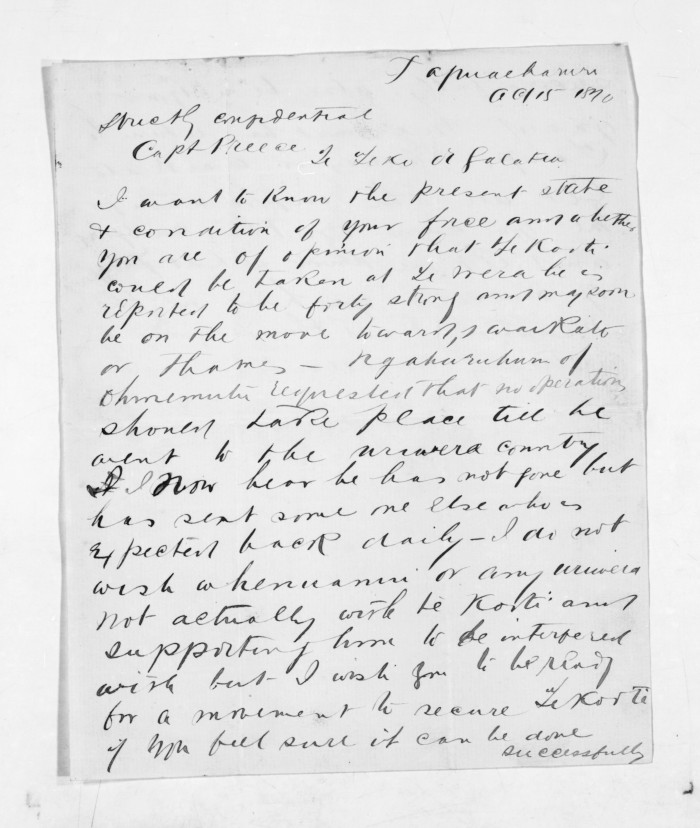 Tapuaeharuru
Oct 15 1870
Strictly confidential
Capt Preece Te Teko or Galatea
I want to know the present state
& condition of your force and whether
you are of opinion that Te Kooti
could be taken at Te Wera he is
reported to be forty strong and may soon
be on the move towards Waikato
or Thames — of
Ohinemutu requested that no operations
should take place till he
went to the Uriwera country
I now hear he has not gone but
has sent some one else who is
expected back daily — I do not
wish Whenuanui or any Uriwera
not actually with Te Kooti and
supporting him to be interfered
with but I wish you to be ready
for a movement to secure Te Kooti
if you feel sure it can be done
successfully